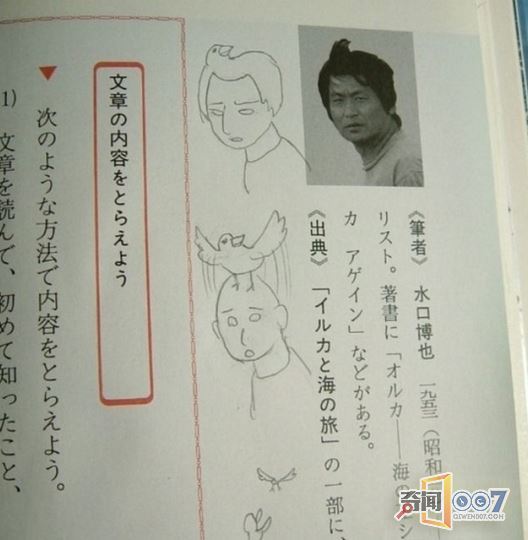 《筆者》 水口博也 一九五三(昭和
リスト。著書に「オルカ——海の
カ アゲイン」などがある。
《出典》「イルカと海の旅」の一部に、
文章の内容をとらえよう
▼ 次のような方法で内容をとらえよう。
1) 文章を読んで、初めて知ったこと、
奇闻007
QIWEN007.COM